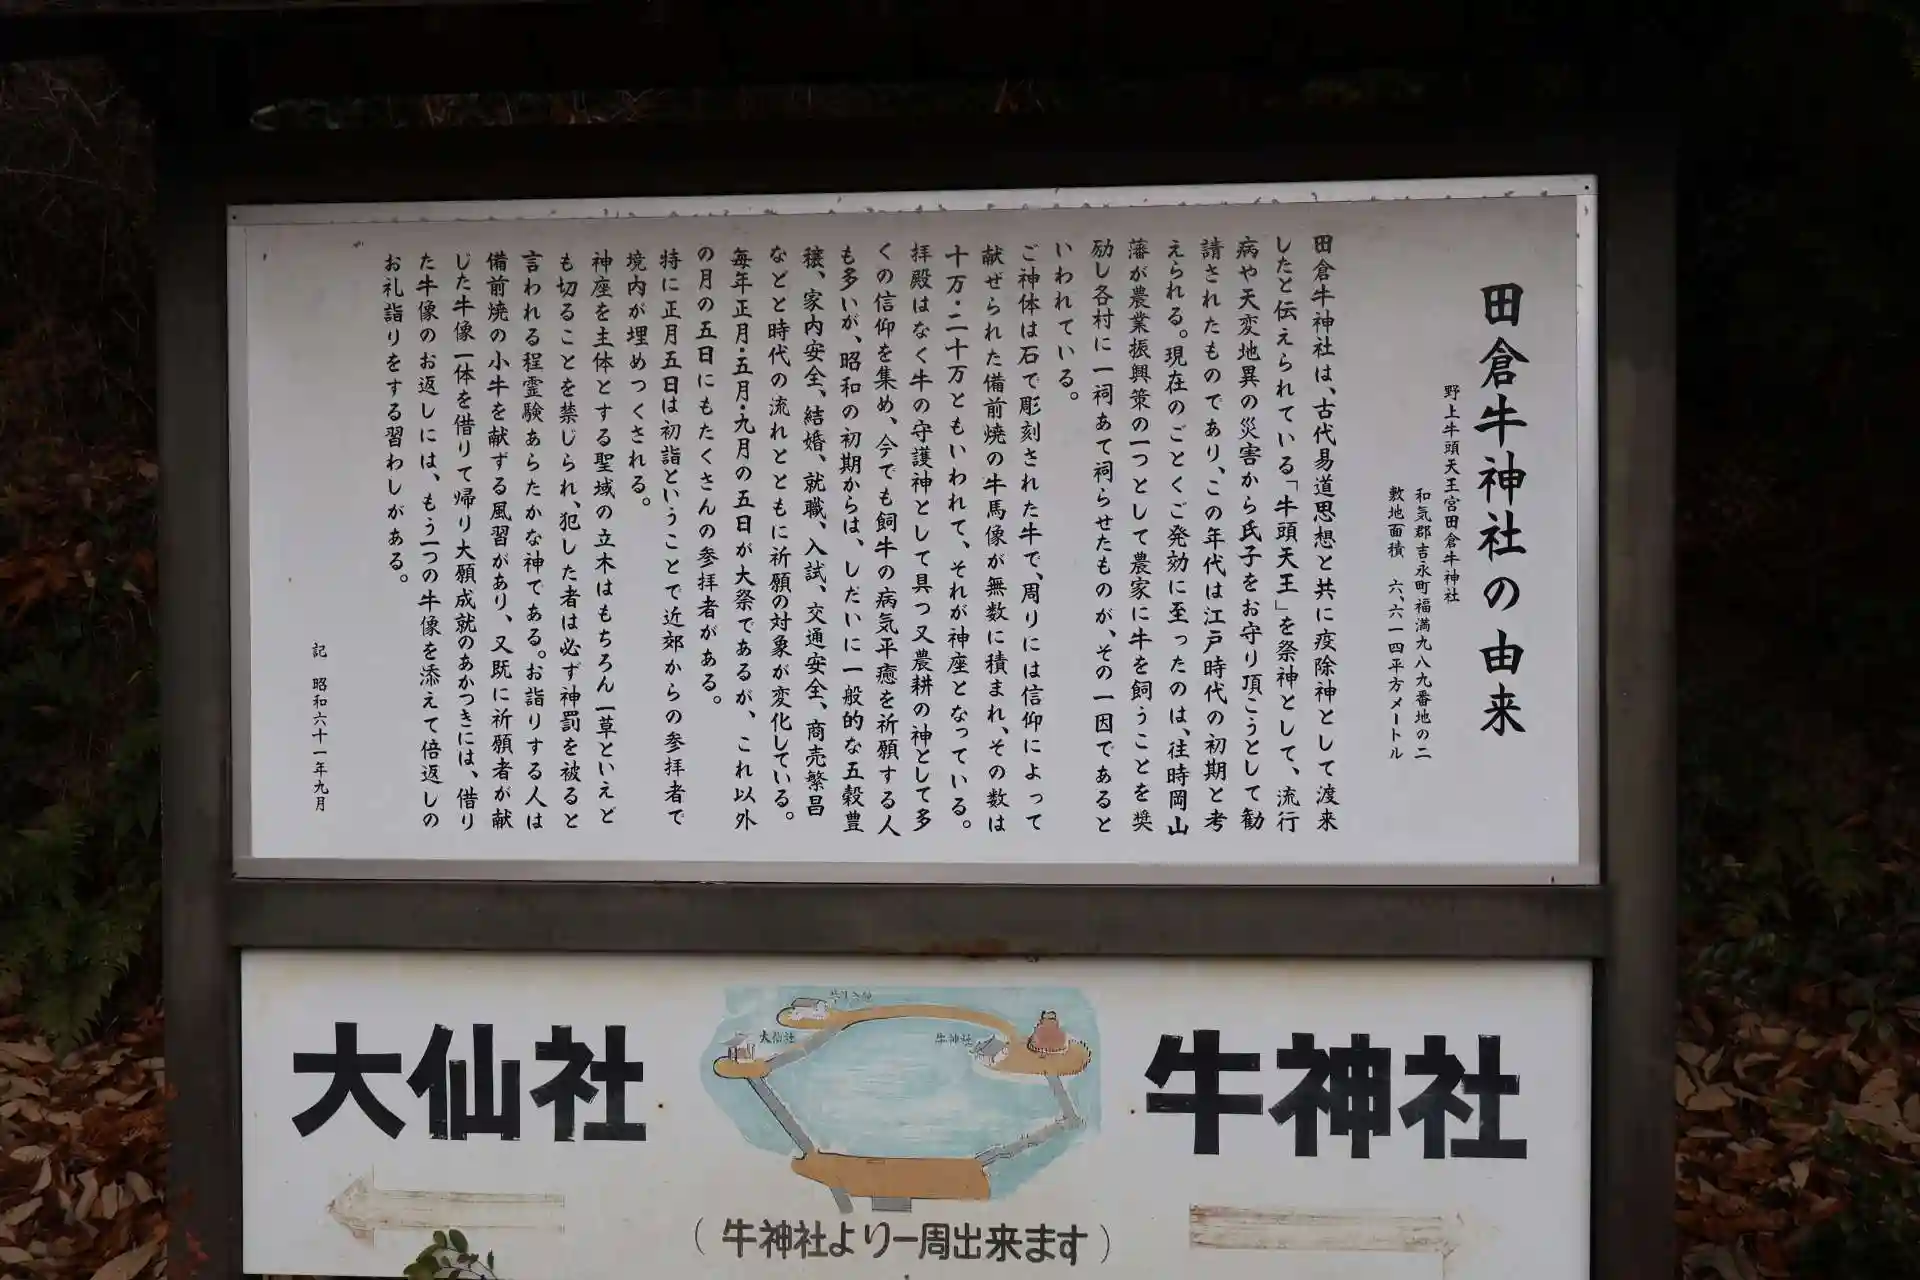 田倉牛神社の由来
野上牛頭天王宮田倉牛神社
和気郡吉永町福満九八九番地の二
敷地面積 六、六一四平方メートル
田倉牛神社は、古代易道思想と共に疫除神として渡来
したと伝えられている「牛頭天王」を祭神として、流行
病や天変地異の災害から氏子をお守り頂こうとして勧
請されたものであり、この年代は江戸時代の初期と考
えられる。現在のごとくご発効に至ったのは、往時岡山
藩が農業振興策の一つとして農家に牛を飼うことを奨
励し各村に一祠あて祠らせたものが、その一因であると
いわれている。
ご神体は石で彫刻された牛で、周りには信仰によって
献ぜられた備前焼の牛馬像が無数に積まれ、その数は
十万・二十万ともいわれて、それが神座となっている。
拝殿はなく牛の守護神として具つ又農耕の神として多
くの信仰を集め、今でも飼牛の病気平癒を祈願する人
も多いが、昭和の初期からは、しだいに一般的な五穀豊
穣、家内安全、結婚、就職、入試、交通安全、商売繁昌
などと時代の流れとともに祈願の対象が変化している。
毎年正月・五月・九月の五日が大祭であるが、これ以外
の月の五日にもたくさんの参拝者がある。
特に正月五日は初詣ということで近郊からの参拝者で
境内が埋めつくされる。
神座を主体とする聖域の立木はもちろん一草といえど
も切ることを禁じられ、犯した者は必ず神罰を被ると
言われる程霊験あらたかな神である。お詣りする人は
備前焼の小牛を献ずる風習があり、又既に祈願者が献
じた牛像一体を借りて帰り大願成就のあかつきには、借り
た牛像のお返しには、もう一つの牛像を添えて倍返しの
お礼詣りをする習わしがある。
記 昭和六十一年九月
大仙社
大仙社
牛神社
牛神社
(牛神社より一周出来ます)